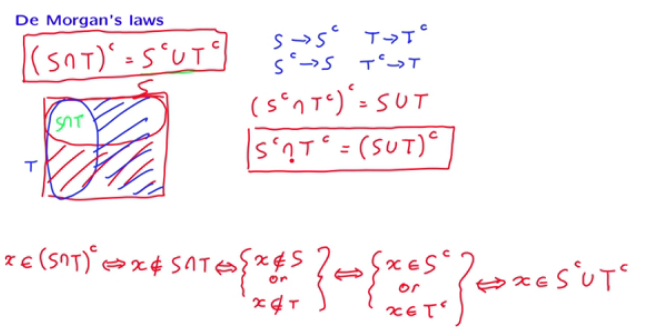 De Morgan's laws
(S∩T)ᶜ = Sᶜ∪Tᶜ
S→Sᶜ T→Tᶜ
Sᶜ→S Tᶜ→T
(Sᶜ∩Tᶜ)ᶜ = S∪T
Sᶜ∩Tᶜ = (S∪T)ᶜ
S
S∩T
T
x∈(S∩T)ᶜ ⇔ x∉S∩T ⇔ {x∉S or x∉T} ⇔ {x∈Sᶜ or x∈Tᶜ} ⇔ x∈Sᶜ∪Tᶜ